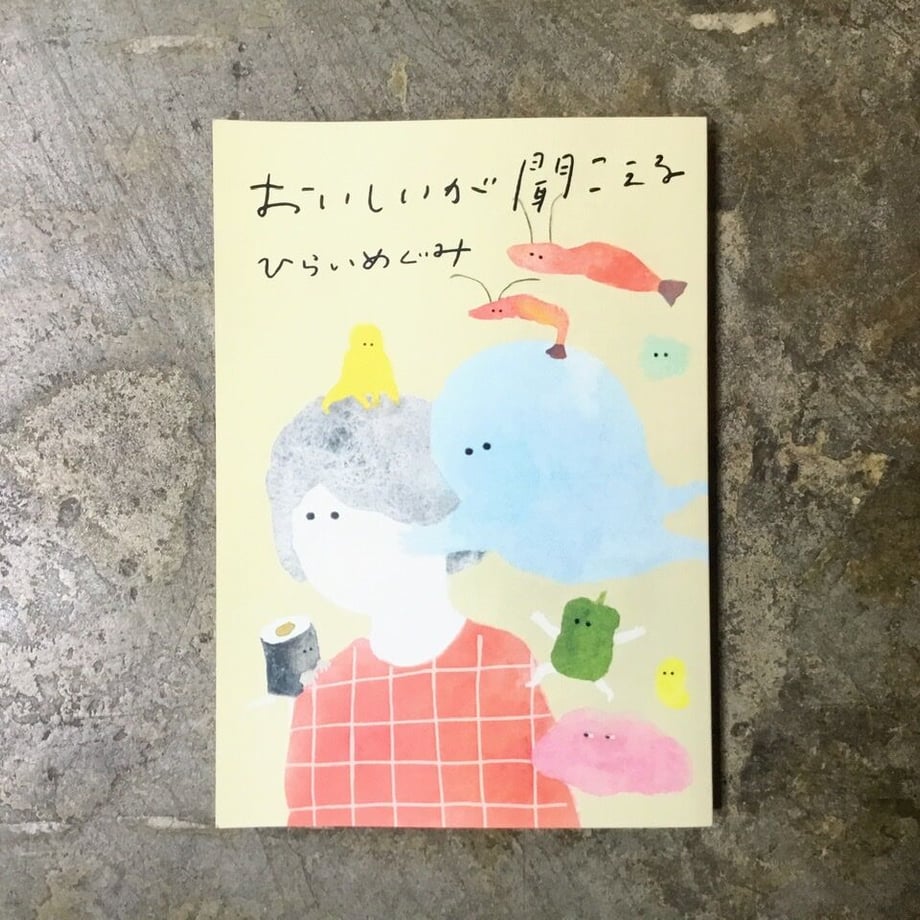 おいしいが聞こえる
ひらいめぐみ